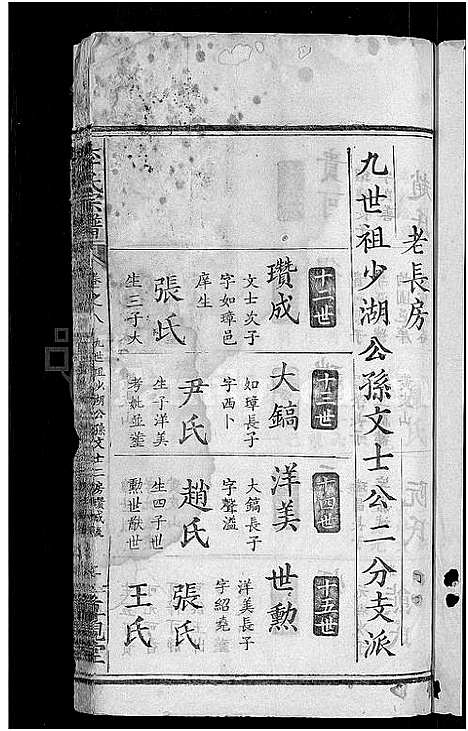 老長房
九世祖少湖公孫文士公二分支派
十二世
瓚成
文士次子
字如璋邑
庠生
張氏
生三子大
十三世
大鎬
如璋長子
字西卜
尹氏
生子洋美
考妣並塟
十四世
洋美
大鎬長子
字聲溢
趙氏
生四子世
勲世猷世
十五世
世勲
洋美長子
字紹堯
張氏
王氏
氏宗譜
卷之八
九世祖少湖公孫文士二房瓚成